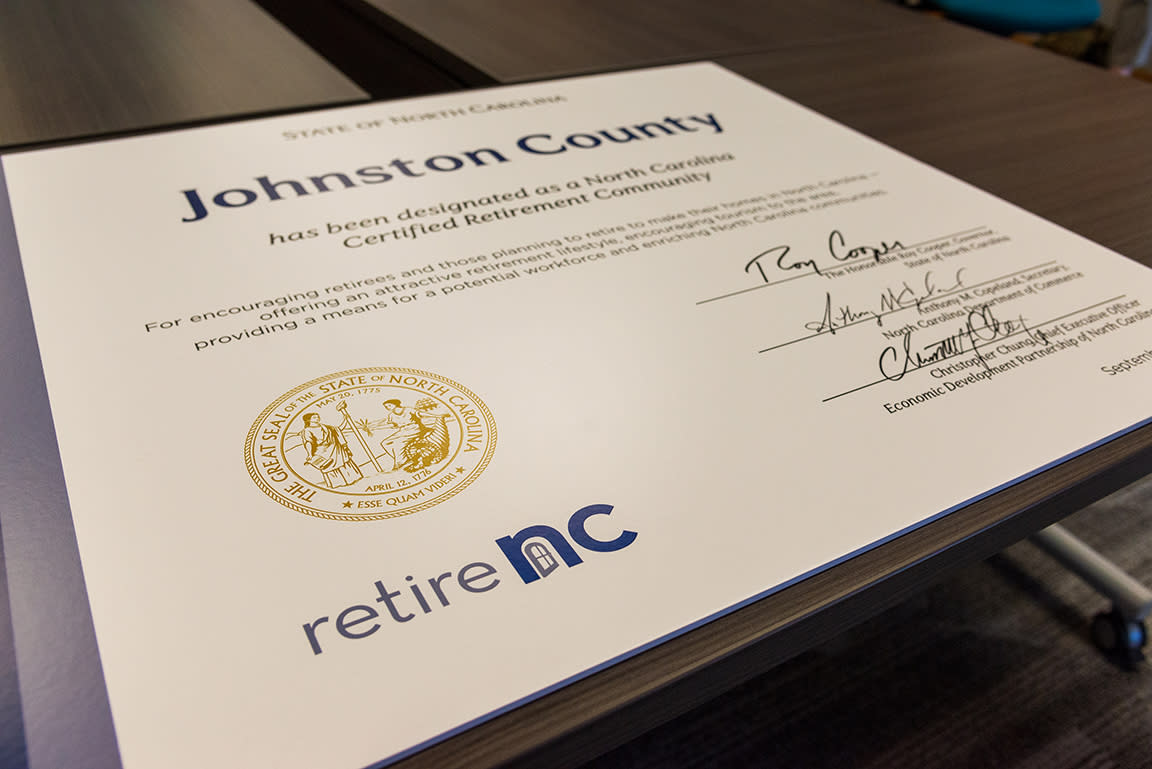 STATE OF NORTH CAROLINA
Johnston County
has been designated as a North Carolina
Certified Retirement Community
For encouraging retirees and those planning to retire to make their homes in North Carolina –
offering an attractive retirement lifestyle, encouraging tourism to the area,
providing a means for a potential workforce and enriching North Carolina communities.
Roy Cooper
The Honorable Roy Cooper, Governor,
State of North Carolina
Anthony M. Copeland, Secretary,
North Carolina Department of Commerce
Christopher Chung, Chief Executive Officer
Economic Development Partnership of North Carolina
THE GREAT SEAL OF THE STATE OF NORTH CAROLINA
MAY 20, 1775
APRIL 12, 1776
★ ESSE QUAM VIDERI ★
retire nc